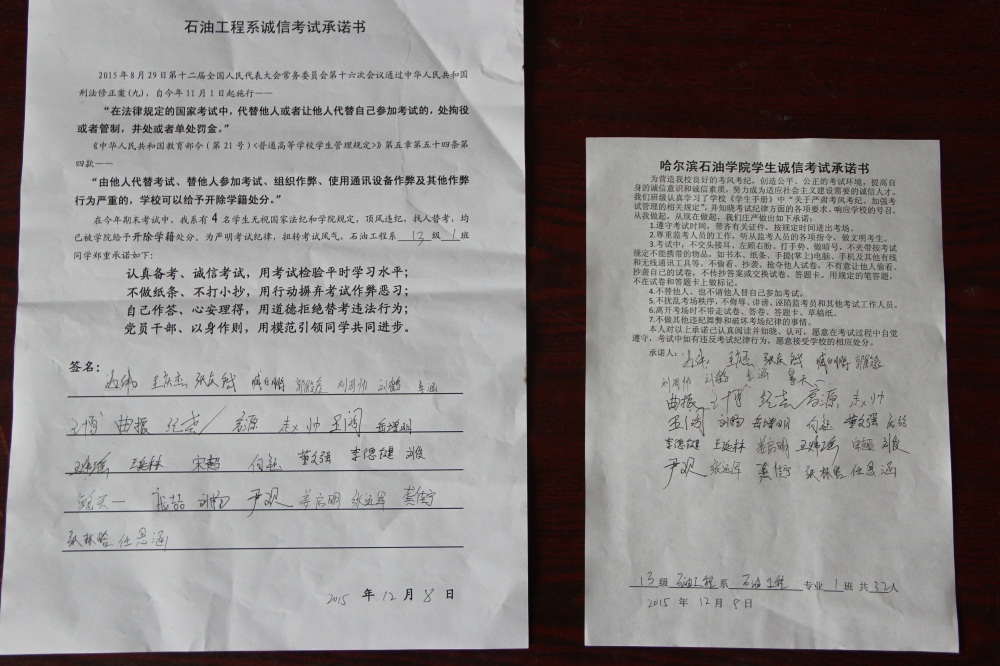 石油工程系诚信考试承诺书
2015年8月29日第十二届全国人民代表大会常务委员会第十六次会议通过中华人民共和国
刑法修正案(九)，自今年11月1日起施行——
“在法律规定的国家考试中，代替他人或者让他人代替自己参加考试的，处拘役
或者管制，并处或者单处罚金。”
《中华人民共和国教育部令(第21号)<普通高等学校学生管理规定>》第五章第五十四条第
四款——
“由他人代替考试、替他人参加考试、组织作弊、使用通讯设备作弊及其他作弊
行为严重的，学校可以给予开除学籍处分。”
在今年期末考试中，我系有4名学生无视国家法纪和学院规定，顶风违纪，找人替考，均
已被学院给予开除学籍处分。为严明考试纪律，扭转考试风气，石油工程系 13 级 1 班
同学郑重承诺如下：
认真备考、诚信考试，用考试检验平时学习水平；
不做纸条、不打小抄，用行动摒弃考试作弊恶习；
自己作答、心安理得，用道德拒绝替考违法行为；
党员干部、以身作则，用模范引领同学共同进步。
签名：
王博 曲振 高源 赵帅 岳增明
王延林 宋超 董文强 李德健 刘俊
尹观 姜启明 张远军 龚佳宁
张林晗 任思涵
2015 年 12 月 8 日
哈尔滨石油学院学生诚信考试承诺书
为营造我校良好的考风考纪，创造公平、公正的考试环境，提高自
身的诚信意识和诚信素质，努力成为适应社会主义建设需要的诚信人才。
我们班级认真学习了学校《学生手册》中“关于严肃考风考纪，加强考
试管理的相关规定”，并知晓考试纪律方面的各项要求。响应学校的号召，
从我做起，从现在做起，我们庄严做出如下承诺：
1.遵守考试时间，带齐有关证件，按规定时间进出考场。
2.尊重监考人员的工作，听从监考人员的各项指令，做文明考生。
3.考试中，不交头接耳、左顾右盼、打手势、做暗号，不夹带按考试
规定不能携带的物品，如书本、纸条、手提(掌上)电脑、手机及其他有线
和无线通讯工具等，不偷看、抄袭、抢夺他人试卷，不有意让他人偷看、
抄袭自己的试卷，不传抄答案或交换试卷、答题卡，用规定的笔答题，
不在试卷和答题卡上做标记。
4.不替他人、也不请他人替自己参加考试。
5.不扰乱考场秩序，不侮辱、诽谤、诬陷监考员和其他考试工作人员。
6.离开考场时不带走试卷、答卷、答题卡、草稿纸。
7.不做其他违纪舞弊和破坏考场纪律的事情。
本人对以上承诺已认真阅读并知晓、认可，愿意在考试过程中自觉
遵守，考试中如有违反考试纪律行为，愿意接受学校的相应处分。
承诺人：
曲振 王博 高源 赵帅
岳增明 董文强
李德健 王延林 姜启明 刘俊
尹观 张远军 龚佳宁 张林晗 任思涵
13 级 石油工程 系 石油工程 专业 1 班 共 32 人
2015 年 12 月 8 日